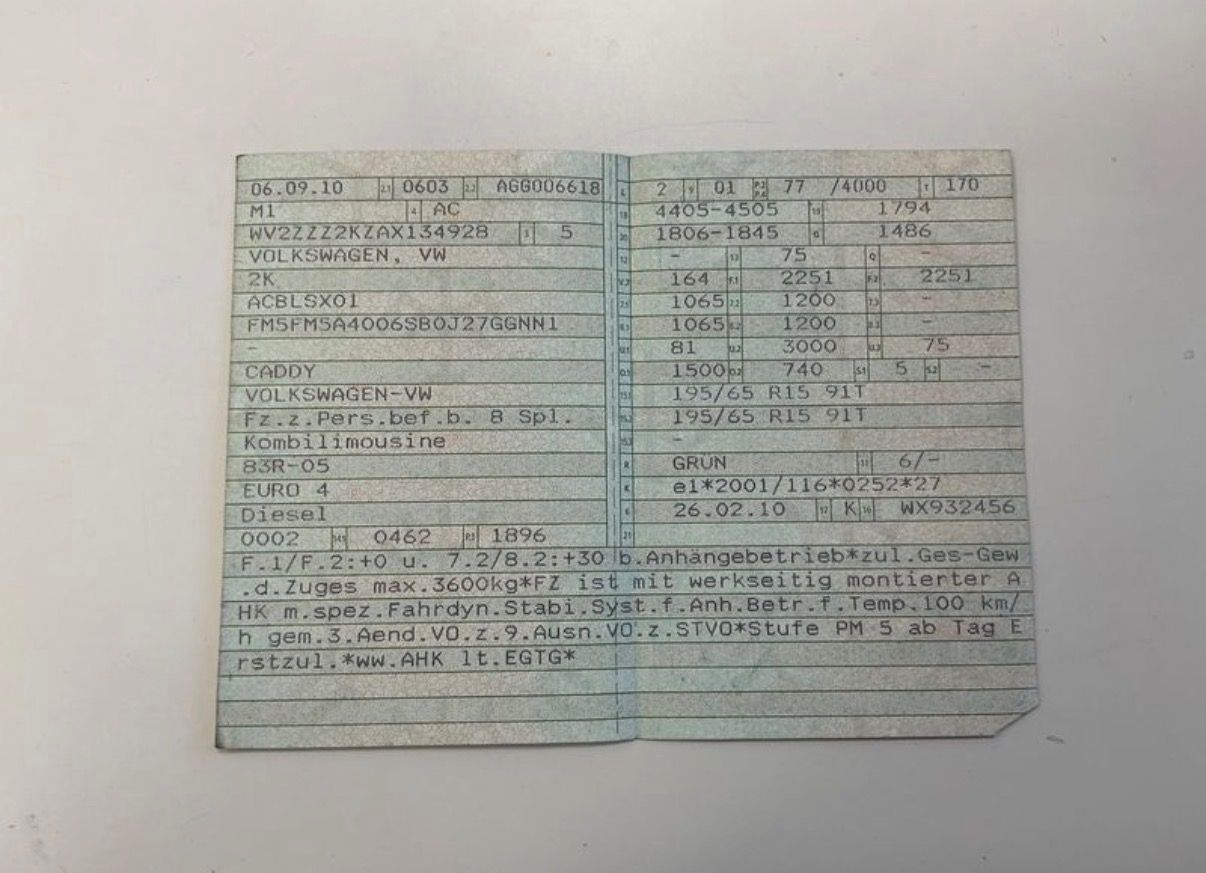 06.09.10 2.1 0603 2.2 AGG006618
M1 4 AC
WV2ZZZ2KZAX134928 3 5
VOLKSWAGEN, VW
2K
ACBLSX01
FM5FM5A4006SB0J27GGNN1
-
CADDY
VOLKSWAGEN-VW
Fz.z.Pers.bef.b. 8 Spl.
Kombilimousine
83R-05
EURO 4
Diesel
0002 14.1 0462 P.1 1896
L 2 9 01 P.2 P.4 77 /4000 T 170
18 4405-4505 19 1794
20 1806-1845 G 1486
12 - 13 75 Q -
V.7 164 F.1 2251 F.2 2251
7.1 1065 7.2 1200 7.3 -
8.1 1065 8.2 1200 8.3 -
U.1 81 U.2 3000 U.3 75
O.1 1500 O.2 740 S.1 5 S.2 -
15.1 195/65 R15 91T
15.2 195/65 R15 91T
15.3 -
R GRÜN 11 6/-
K e1*2001/116*0252*27
6 26.02.10 17 K 16 WX932456
21
F.1/F.2:+0 u. 7.2/8.2:+30 b.Anhängebetrieb*zul.Ges-Gew
.d.Zuges max.3600kg*FZ ist mit werkseitig montierter A
HK m.spez.Fahrdyn.Stabi.Syst.f.Anh.Betr.f.Temp.100 km/
h gem.3.Aend.VO.z.9.Ausn.VO.z.STVO*Stufe PM 5 ab Tag E
rstzul.*ww.AHK lt.EGTG*